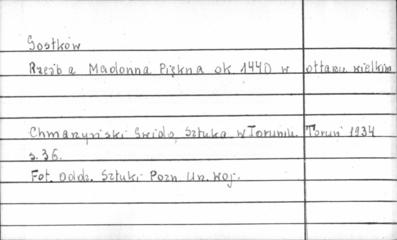 Gostków
Rzeźba Madonna Piękna ok 1440 w ołtarzu wielkim
Chmarzyński Gwido, Sztuka w Toruniu. Toruń 1934
s. 36.
Fot. Oddz. Sztuki Pozn. Urz. Woj.